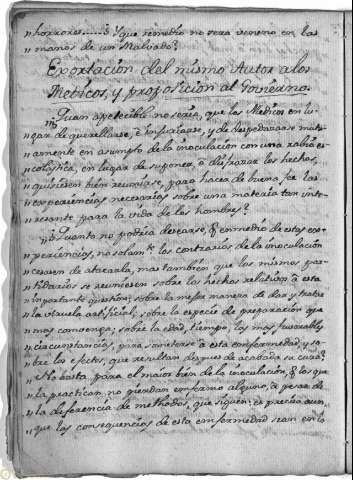 "horrores.....¿Y que remedio no sera veneno en las
"manos de un Malvado?
Exortacion del mismo Autor a los
Medicos, y proposicion al Govierno.
"¿Quan apetecible no sería, que los Medicos en lu-
"gar de querellarse, è injuriarse, y de despedazarse mutu-
"amente en asumpto de la inoculacion con una rabia es-
"colastica, en lugar de suponer, ò disfrazar los hechos,
"quisiesen bien reunirse, para hacer de buena fee las
"experiencias necesarias sobre una materia tan inte-
"resante para la vida de los hombres?
"¿Quanto no podria desearse, q. en medio de estas ex-
"periencias, no solam.te los contrarios de la inoculacion
"cesasen de atacarla, mas tambien que los mismos par-
"tidarios se reuniesen sobre los hechos relativos à esta
"importante question; sobre la mejor manera de dar y tratar
"la viruela artificial; sobre la especie de preparacion que
"mas convenga; sobre la edad, tiempo, las mas favorables
"circunstancias, para someterse à esta enfermedad, y so-
"bre los efectos, que resultan despues de acabada su cura?
"No basta, para el maior bien de la inoculacion, q. los que
"la practican no pierdan enfermo alguno, à pesar de
"la diferencia de methodos, que siguen: es preciso aun,
"que las consequencias de esta enfermedad sean en lo